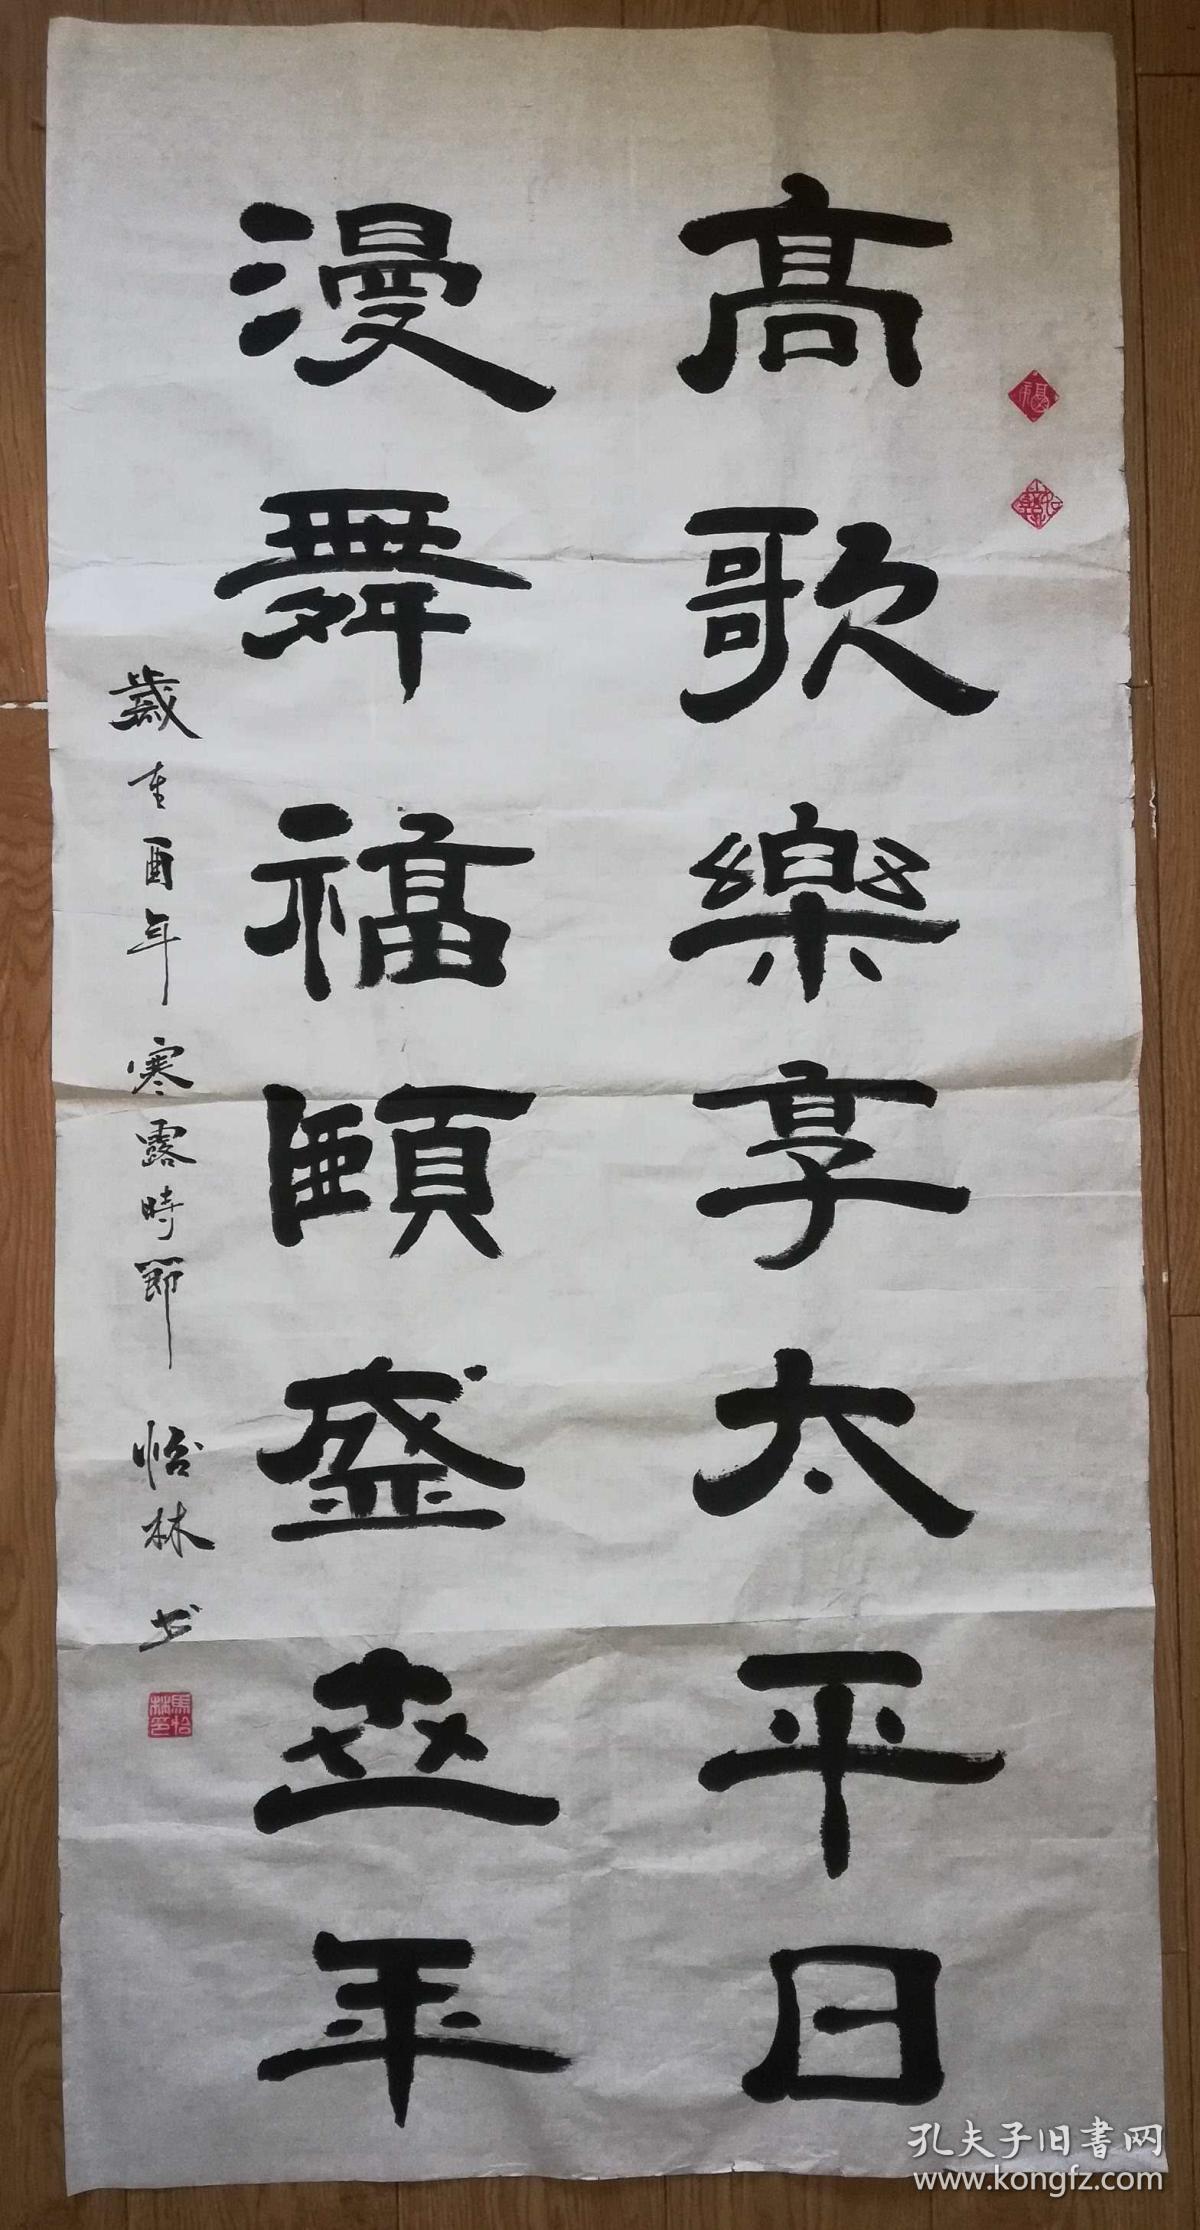 高歌樂享太平日
漫舞福頤盛世年
歲在酉年寒露時節 怡林书
馬怡林印
福
孔夫子旧書网
www.kongfz.com